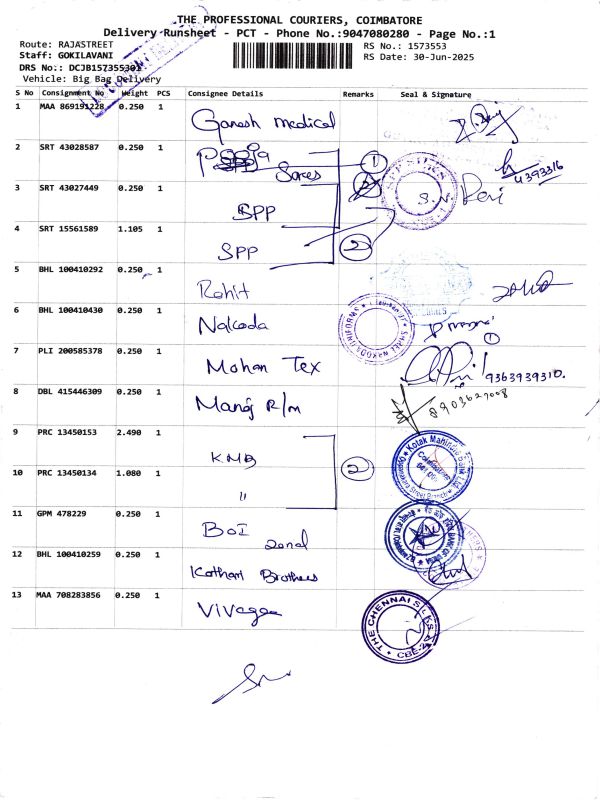 THE PROFESSIONAL COURIERS, COIMBATORE
Delivery Runsheet - PCT - Phone No.:9047080280 - Page No.:1
Route: RAJASTREET
RS No.: 1573553
Staff: GOKILAVANI
RS Date: 30-Jun-2025
DRS No.: DCJB157355301
Vehicle: Big Bag Delivery
S No Consignment No Weight PCS Consignee Details Remarks Seal & Signature
1 MAA 869191228 0.250 1 Ganesh medical
2 SRT 43028587 0.250 1 Sarees 1
4393316
3 SRT 43027449 0.250 1 SPP
S.N.
4 SRT 15561589 1.105 1 SPP 2
5 BHL 100410292 0.250 1 Rohit
6 BHL 100410430 0.250 1 Nakoda
SHREE NAKODA UNIFORMS
7 PLI 200585378 0.250 1 Mohan Tex
1
9363939310.
8 DBL 415446309 0.250 1 Manoj R/m
8903627008
9 PRC 13450153 2.490 1 KMB 2
Kotak Mahindra Bank Ltd.
Coimbatore
10 PRC 13450134 1.080 1 "
11 GPM 478229 0.250 1 BOI zonal
12 BHL 100410259 0.250 1 Kothari Brothers
13 MAA 708283856 0.250 1
THE CHENNAI SILKS
CBE-